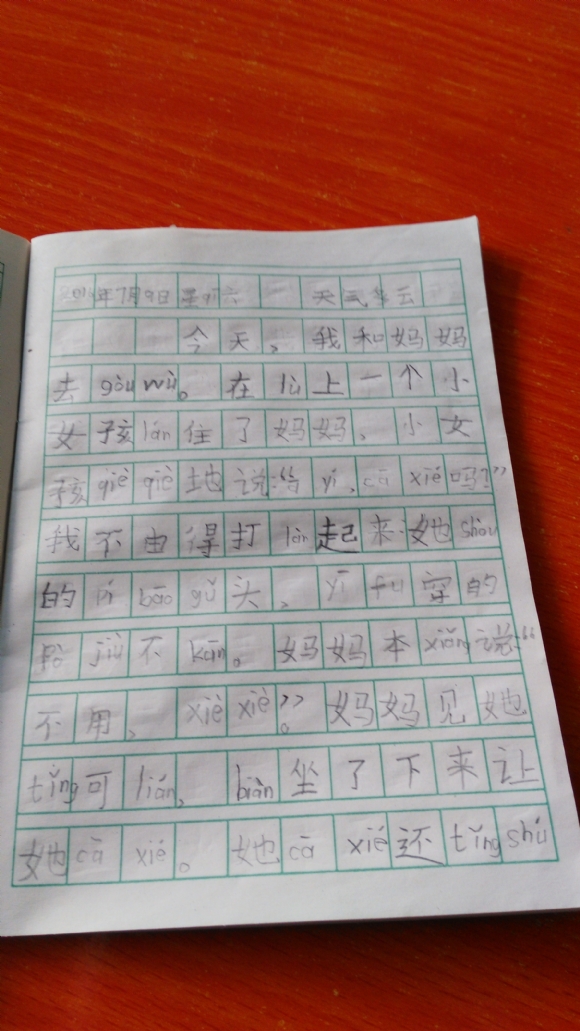 年7月9日 星期六 天气多云
今天，我和妈妈
去gòu wù。在lù上一个小
女孩lán住了妈妈，小女
孩qiè qiè地说:“ yí,cā xié吗?”
我不由得打liàng起来:她shòu
的pí bāo gǔ头，yī fu穿的
Pò jiù不kān。妈妈本xiǎng说:“
不用，xiè xiè”。妈妈见她
tǐng可lián，biàn坐了下来让
她cā xié。她cā xié还tǐng shú